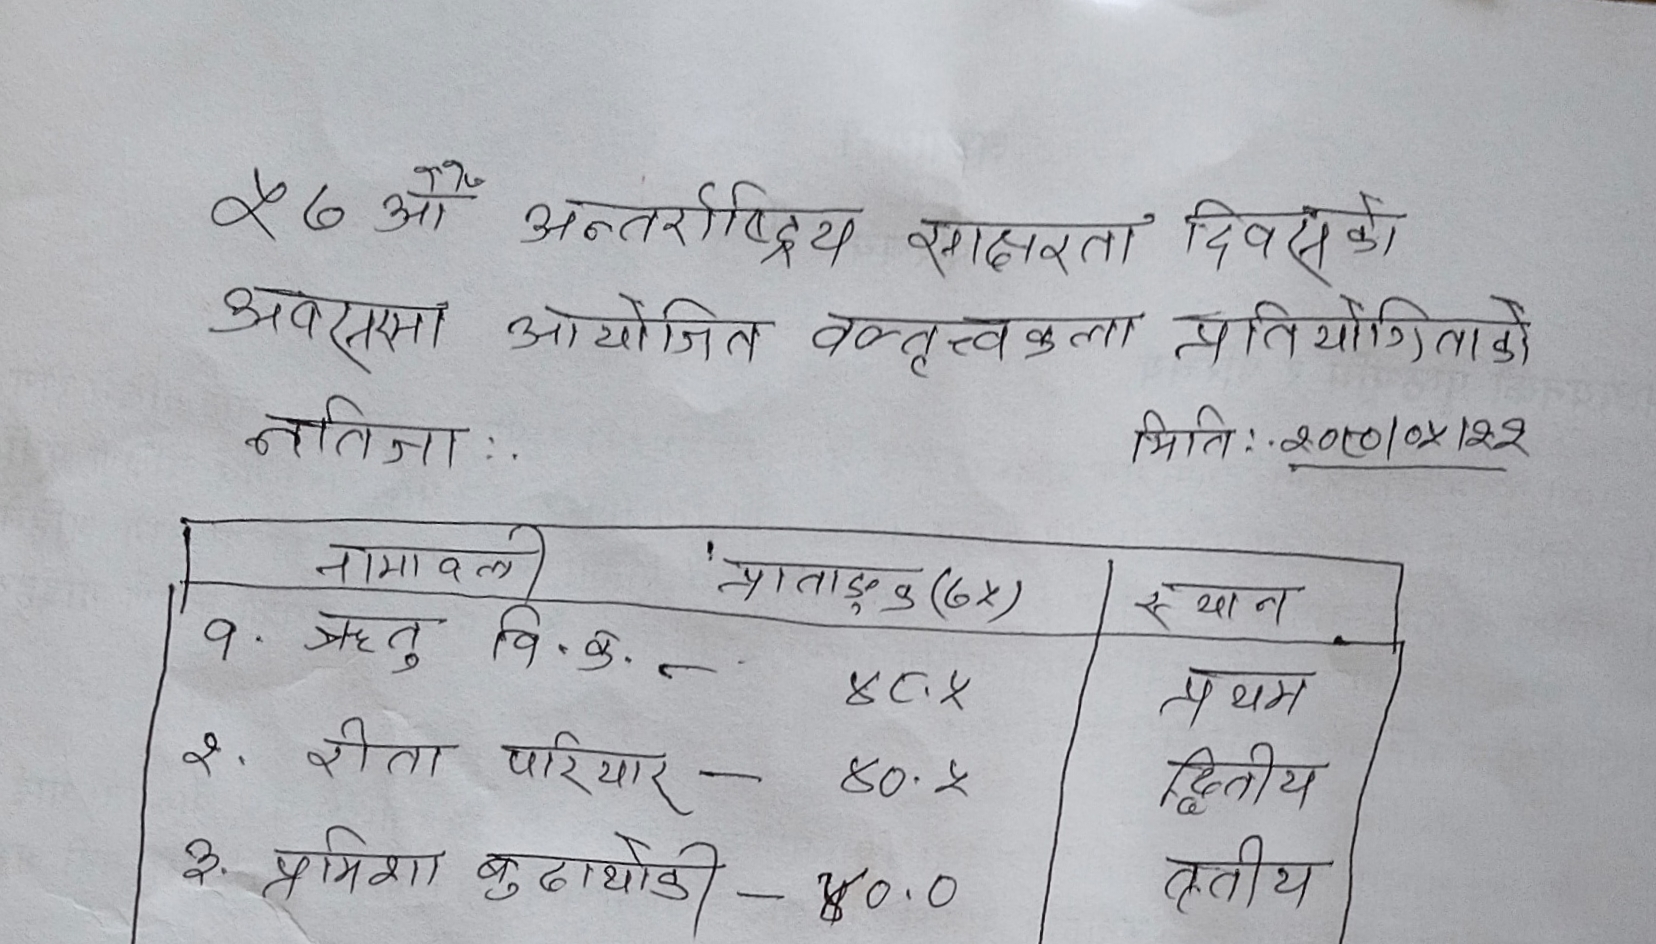 ५७ औँ अन्तर्राष्ट्रिय साक्षरता दिवसको
अवसरमा आयोजित वक्तृत्त्वकला प्रतियोगिताको
नतिजा :.
मिति :. २०८०/०५/२२
नामावली प्राप्ताङ्क (७५) स्थान
१. ऋतु वि.क. - ४८.५ प्रथम
२. रीता परियार — ४०.५ द्वितीय
३. प्रमिशा बुढाथोकी — ४०.० तृतीय